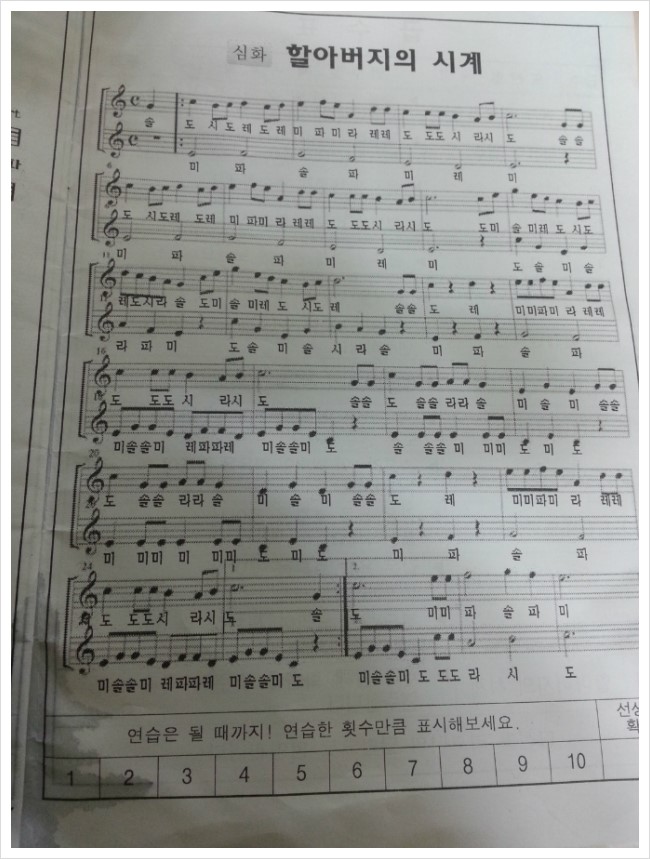 심화 할아버지의 시계
솔 도 시도레도레 미 파미라 레레 도 도도시 라시 도 솔솔
미 파 솔 파 미 레 미
도 시도레 도레 미 파미 라 레레 도 도도시 라시 도 도미 솔 미레 도 시도
미 파 솔 파 미 레 미 도 솔 미 솔
레도시라 솔 도미 솔 미레 도 시도 레 솔솔 도 레 미미파미 라 레레
라 파 미 도 솔 미 솔 시 라 솔 미 파 솔 파
16
도 도도 시 라시 도 솔솔 도 솔솔 라라 솔 미 솔 미 솔솔
미솔솔미 레파파레 미솔솔미 도 솔 솔솔 미 미미 도 미 도
20
도 솔솔 라라 솔 미 솔 미 솔솔 도 레 미미파미 라 레레
미 미미 미 미미 도 미 도 미 파 솔 파
24
1. 2.
도 도도시 라시 도 솔 도 미미 파 솔 파 미
미솔솔미 레파파레 미솔솔미 도 미솔솔미 도 도도 라 시 도
연습은 될 때까지! 연습한 횟수만큼 표시해보세요.
1 2 3 4 5 6 7 8 9 10